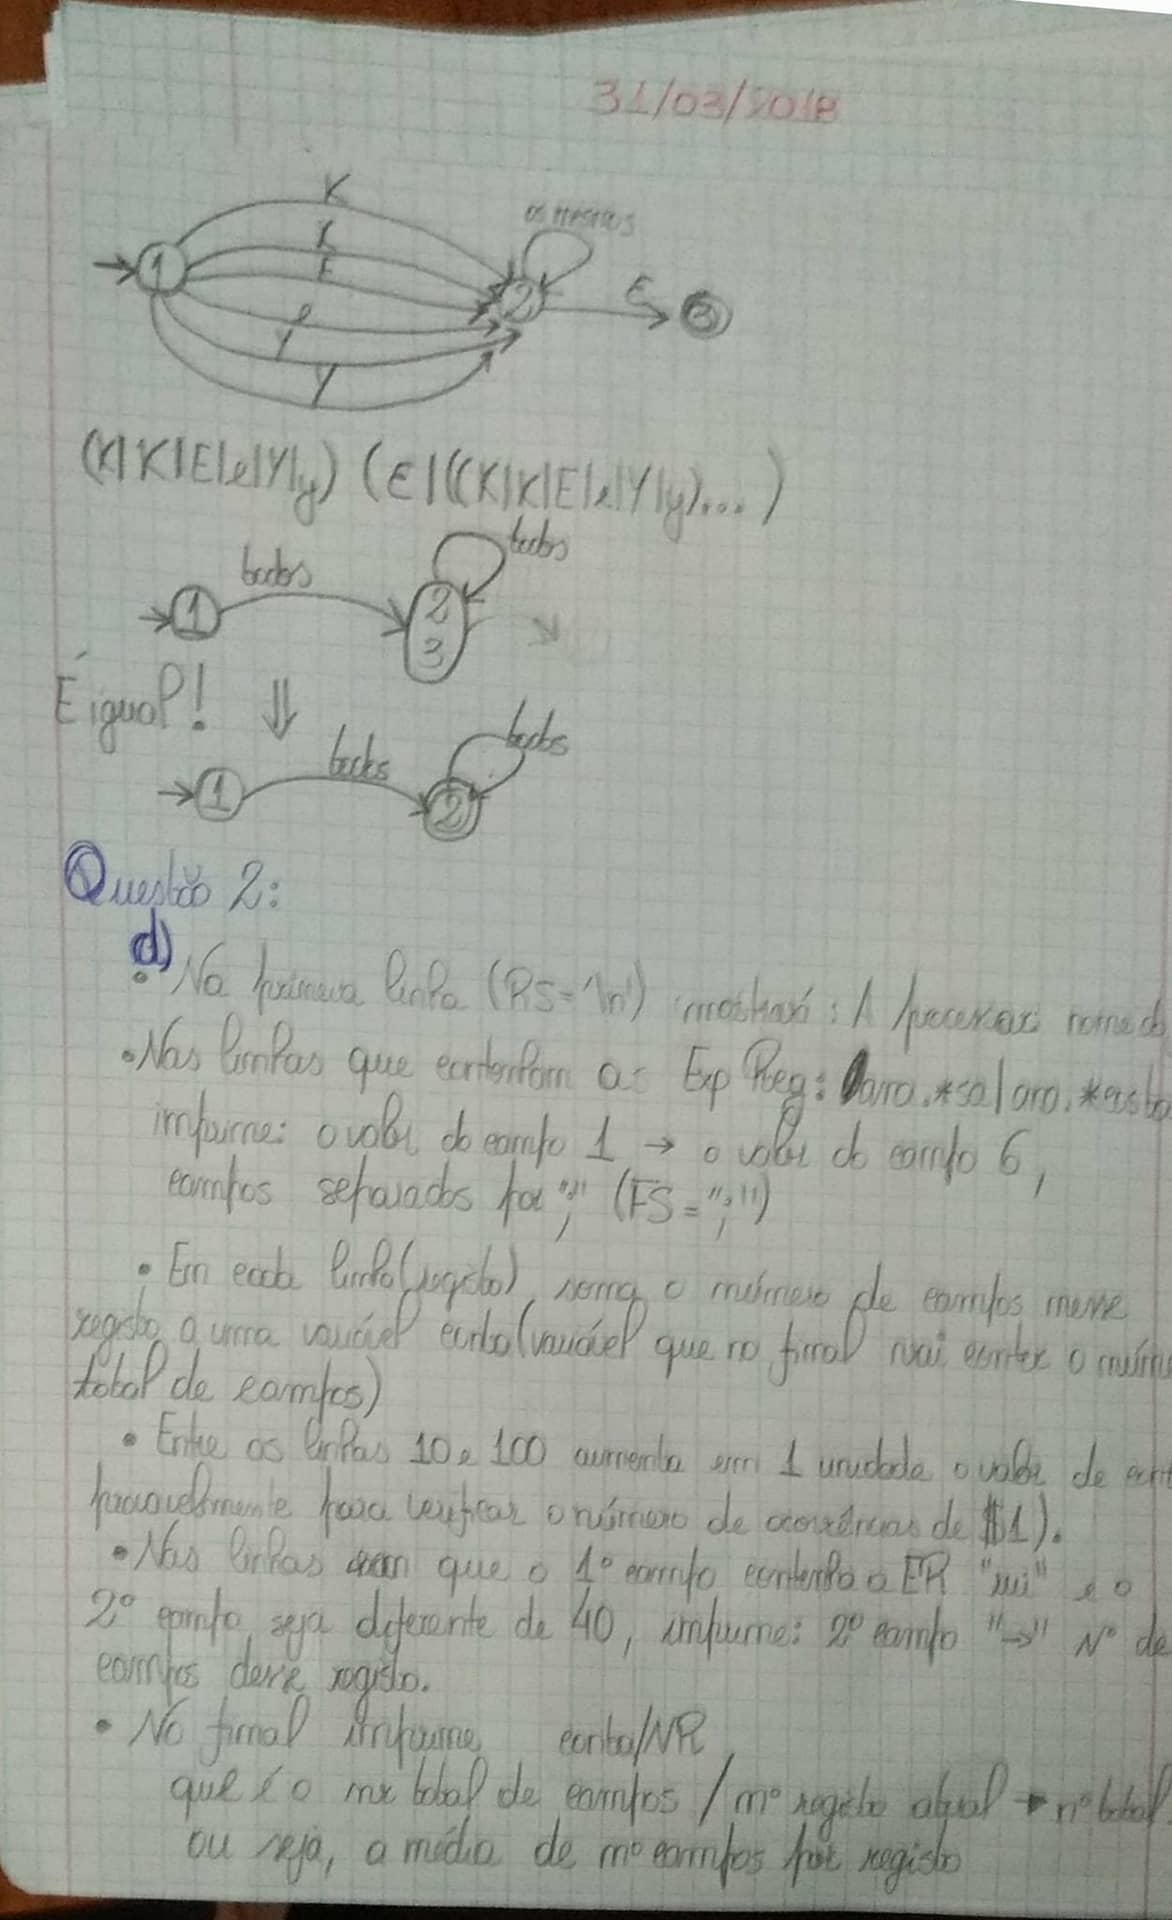 31/03/2018
K
k
E
os mesmos
→ 1
2
ε
3
e
Y
y
(K|k|E|e|Y|y) (ε|((K|k|E|e|Y|y)...)
todos
todos
→ 1
2
3
É igual! ⇓
todos
todos
→ 1
2
Questão 2:
d)
• Na primeira linha (RS='\n') mostrará: A processar: nome d
• Nas linhas que contenham as Exp Reg: ana.*sa|ana.*
imprime: o valor do campo 1 → o valor do campo 6,
campos separados por ";" (FS=";")
• Em cada linha (registo) soma o número de campos nesse
registo a uma variável conta (variável que no final vai conter o núm
total de campos)
• Entre as linhas 10 e 100 aumenta em 1 unidade o valor de cont
provavelmente para verificar o número de ocorrências de $1).
• Nas linhas em que o 1º campo contenha a ER "rui" e o
2º campo seja diferente de 40, imprime: 2º campo "→" Nº de
campos desse registo.
• No final imprime conta/NR
que é o nr total de campos / nº registo atual → nº total
ou seja, a média de nº campos por registo